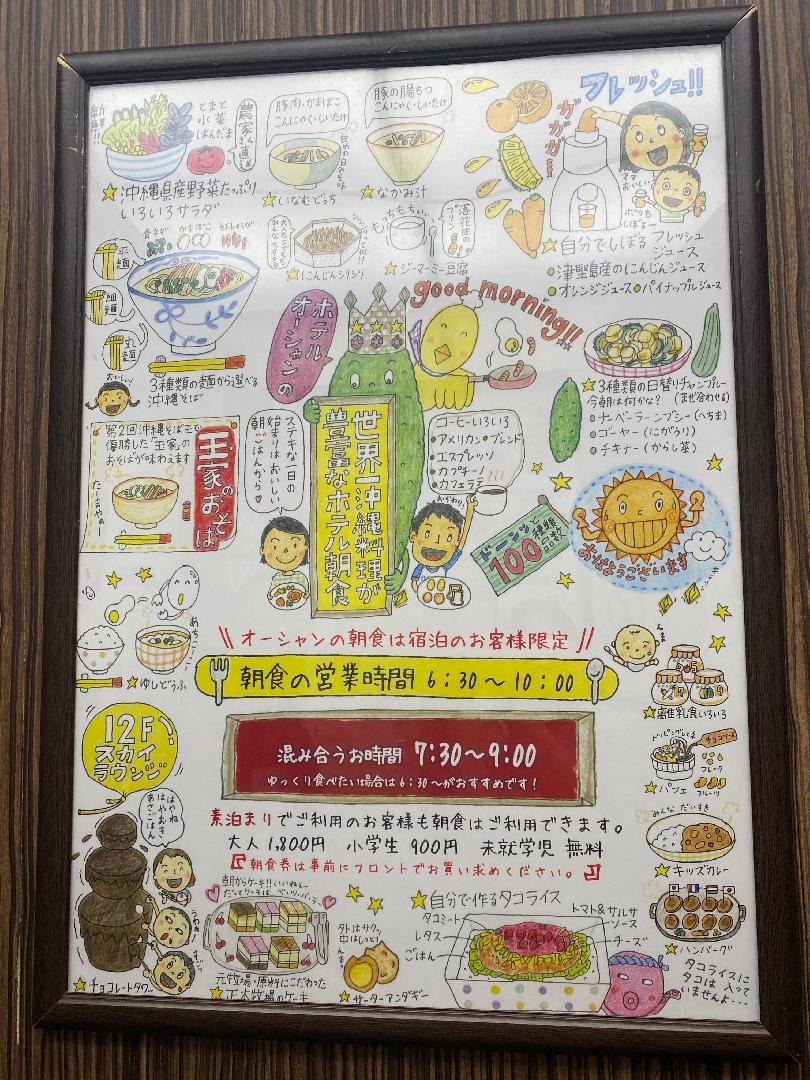 フレッシュ!!
ガガガー
新鮮!!
とまと
水菜
はんだま
農家さん直送
豚肉・かまぼこ
こんにゃく・しいたけ
甘めの白みそ味
豚の腸もつ
こんにゃく・しいたけ
★沖縄県産野菜たっぷり
いろいろサラダ
★いなむどぅち
★なかみ汁
ママ
おいしい
ボクも
しぼるー
★自分でしぼる フレッシュ
ジュース
●津堅島産のにんじんジュース
●オレンジジュース ●パイナップルジュース
もっちもちぃ
落花生の
プリン
★にんじんシリシリ
★ジーマーミー豆腐
青ネギ
かまぼこ
紅しょうが
平麺
細麺
丸麺
おいしいっ
★3種類の麺から選べる
沖縄そば
good morning!!
ホテル
オーシャンの
世界一沖縄料理が
豊富なホテル朝食
★3種類の日替りチャンプルー
今朝は何かな? (まぜ合わせる)
●ナーベーラーンブシー(へちま)
●ゴーヤー(にがうり)
●チキナー(からし菜)
第2回沖縄そば王で
優勝した「玉家」の
おそばが味わえます
玉家のおそば
たーまやぁー
ステキな一日の
始まりはおいしい
朝ごはんから♥
コーヒーいろいろ
●アメリカン●ブレンド
●エスプレッソ
●カプチーノ
●カフェラテ
おかわり!
ドーナツ
100種類
以上
おはようございます
あちこーこー
★ゆしどうふ
\\ オーシャンの朝食は宿泊のお客様限定 //
朝食の営業時間 6:30〜10:00
んま
★離乳食いろいろ
12F
スカイ
ラウンジ
混み合うお時間 7:30〜9:00
ゆっくり食べたい場合は6:30〜がおすすめです!
トッピングしてネ
チョコソース
フレーク
フルーツ
★パフェ
はやね
はやおき
あさごはん
素泊まりでご利用のお客様も朝食はご利用できます。
大人1,800円 小学生900円 未就学児 無料
『朝食券は事前にフロントでお買い求めください。』
みんな だいすき
★キッズカレー
うわぁ
★チョコレートタワー
朝からケーキ!!いいねぇ〜
だってケーキは、ベツバラ〜
元牧場・原料にこだわった
★正太牧場のケーキ
外はサクッ
中はしっとり
んま
★サーターアンダギー
★自分で作るタコライス
タコミート
レタス
ごはん
トマト&サルサ
ソース
チーズ
★ハンバーグ
タコライスに
タコは 入って
いませんよ…